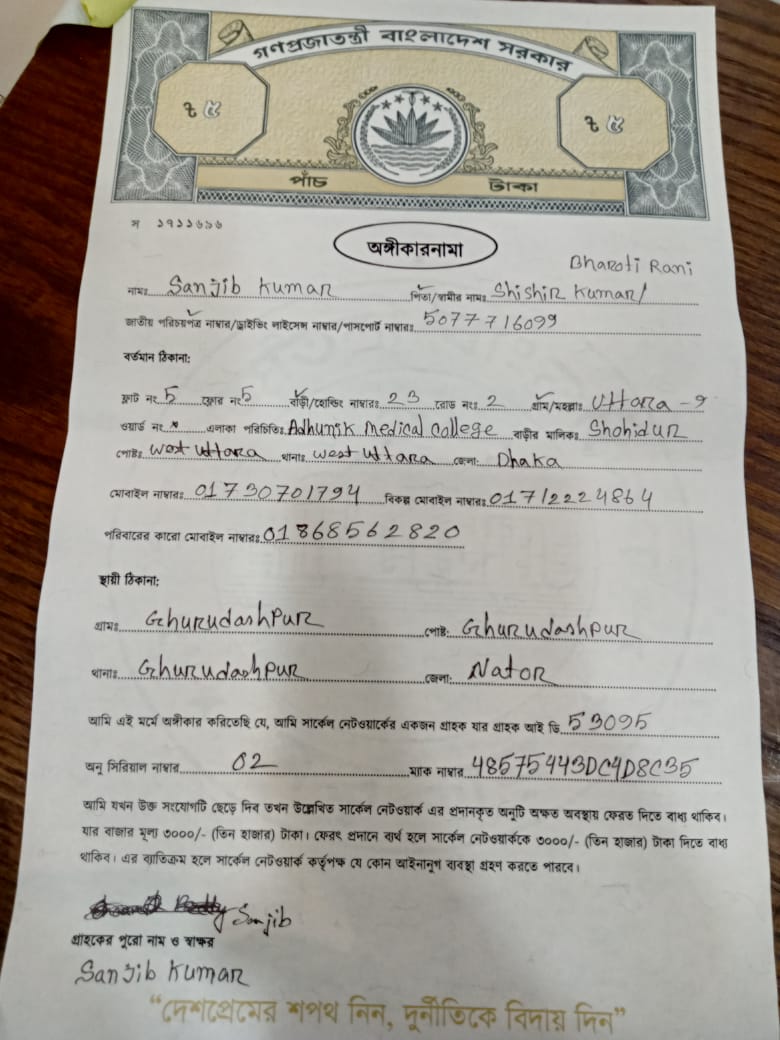 গণপ্রজাতন্ত্রী বাংলাদেশ সরকার
৳ ৫ ৳ ৫
পাঁচ টাকা
স ১৭১১৬৯৬
অঙ্গীকারনামা
Bharoti Rani
নামঃ Sanjib Kumar পিতা/স্বামীর নামঃ Shishir Kumar/
জাতীয় পরিচয়পত্র নাম্বার/ড্রাইভিং লাইসেন্স নাম্বার/পাসপোর্ট নাম্বারঃ 5077716099
বর্তমান ঠিকানা:
ফ্লাট নং 5 ফ্লোর নং 5 বাড়ী/হোল্ডিং নাম্বারঃ 23 রোড নংঃ 2 গ্রাম/মহল্লাঃ Uttara - 9
ওয়ার্ড নং এলাকা পরিচিতিঃ Adhunik Medical College বাড়ীর মালিকঃ Shohidur
পোষ্টঃ West Uttara থানাঃ West Uttara জেলা: Dhaka
মোবাইল নাম্বারঃ 01730701794 বিকল্প মোবাইল নাম্বারঃ 01712224864
পরিবারের কারো মোবাইল নাম্বারঃ 01868562820
স্থায়ী ঠিকানা:
গ্রামঃ Ghurudashpur পোষ্ট: Ghurudashpur
থানাঃ Ghurudashpur জেলা: Nator
আমি এই মর্মে অঙ্গীকার করিতেছি যে, আমি সার্কেল নেটওয়ার্কের একজন গ্রাহক যার গ্রাহক আই ডি 53095
অনু সিরিয়াল নাম্বার 02 ম্যাক নাম্বার 48575443DC4D8C35
আমি যখন উক্ত সংযোগটি ছেড়ে দিব তখন উল্লেখিত সার্কেল নেটওয়ার্ক এর প্রদানকৃত অনুটি অক্ষত অবস্থায় ফেরত দিতে বাধ্য থাকিব।
যার বাজার মূল্য ৩০০০/- (তিন হাজার) টাকা। ফেরৎ প্রদানে ব্যর্থ হলে সার্কেল নেটওয়ার্ককে ৩০০০/- (তিন হাজার) টাকা দিতে বাধ্য
থাকিব। এর ব্যতিক্রম হলে সার্কেল নেটওয়ার্ক কর্তৃপক্ষ যে কোন আইনানুগ ব্যবস্থা গ্রহণ করতে পারবে।
Sanjib
গ্রাহকের পুরো নাম ও স্বাক্ষর
Sanjib Kumar
“দেশপ্রেমের শপথ নিন, দুর্নীতিকে বিদায় দিন”